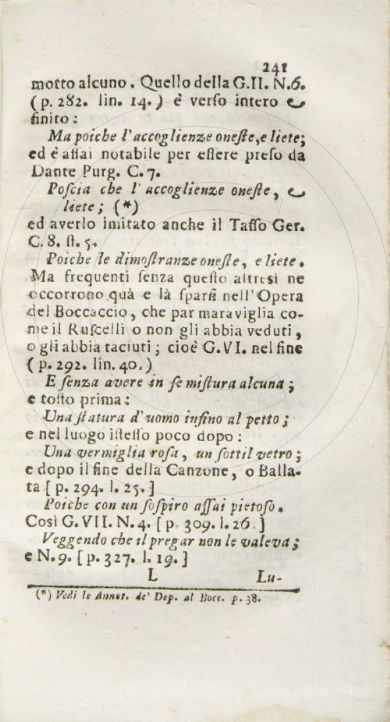 241
motto alcuno. Quello della G.II. N.6.
(p. 282. lin. 14.) è verso intero e
finito:
Ma poiche l'accoglienze oneste, e liete;
ed è assai notabile per essere preso da
Dante Purg. C. 7.
Poscia che l'accoglienze oneste, e
liete; (*)
ed averlo imitato anche il Tasso Ger.
C. 8. st. 5.
Poiche le dimostranze oneste, e liete.
Ma frequenti senza questo altresì ne
occorrono quà e là sparsi nell'Opera
del Boccaccio, che par maraviglia co-
me il Ruscelli o non gli abbia veduti,
o gli abbia taciuti; cioè G.VI. nel fine
(p. 292. lin. 40.)
E senza avere in se mistura alcuna;
e tosto prima:
Una statura d'uomo infino al petto;
e nel luogo istesso poco dopo:
Una vermiglia rosa, un sottil vetro;
e dopo il fine della Canzone, o Balla-
ta [p. 294. l. 25.]
Poiche con un sospiro assai pietoso.
Così G. VII. N. 4. [p. 309. l. 26.]
Veggendo che il pregar non le valeva;
e N. 9. [p. 327. l. 19.]
L Lu-
(*) Vedi le Annot. de' Dep. al Bocc. p. 38.